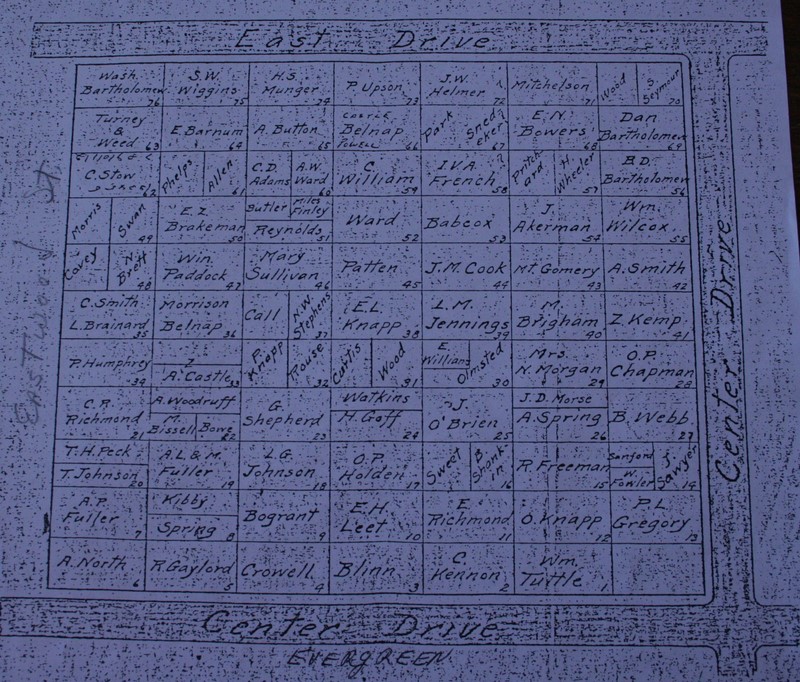 East Drive
Wash. Bartholomew 76
S.W. Wiggins 75
H.S. Munger 74
P. Upson 73
J.W. Helmer 72
Mitchelson 71
Wood
S. Seymour 70
Turney & Weed 63
E. Barnum 64
A. Button 65
Belnap
Powell 66
Park
Sned eker 67
E.N. Bowers 68
Dan Bartholomew 69
C. Stow
Phelps
Allen 61
C.D. Adams
A.W. Ward 60
C. William 59
I.V.A. French 58
Pritch ard
H. Wheeler 57
B.D. Bartholomew 56
Morris
Swan 49
E.Z. Brakeman 50
Butler
Miles Finley
Reynolds 51
Ward 52
Babcox 53
J. Akerman 54
Wm. Wilcox 55
Covey
N. Brett 48
Win. Paddock 47
Mary Sullivan 46
Patten 45
J.M. Cook 44
Mt. Gomery 43
A. Smith 42
C. Smith
L. Brainard 35
Morrison
Belnap 36
Call
N.W. Stephens 37
E.L. Knapp 38
L.M. Jennings 39
M. Brigham 40
Z. Kemp 41
P. Humphrey 34
Z.
A. Castle 33
P. Knapp
Rouse 32
Curtis
Wood 31
E. Williams
Olmsted 30
Mrs. N. Morgan 29
O.P. Chapman 28
C.R. Richmond 21
A. Woodruff
M. Bissell
Bowe 22
G. Shepherd 23
Watkins
H. Goff 24
J. O'Brien 25
J.D. Morse
A. Spring 26
B. Webb 27
T.H. Peck
T. Johnson 20
A.L. & M. Fuller 19
L.G. Johnson 18
O.P. Holden 17
Sweet
B. Shonk in 16
R. Freeman 15
Sanford
W. Fowler
J. Sawyer 14
A.P. Fuller 7
Kibby
Spring 8
Bogrant 9
E.H. Leet 10
E. Richmond 11
O. Knapp 12
P.L. Gregory 13
A. North 6
R. Gaylord 5
Crowell 4
Blinn 3
C. Kennon 2
Wm. Tuttle 1
Eastwood St.
Center Drive
Center Drive
EVERGREEN